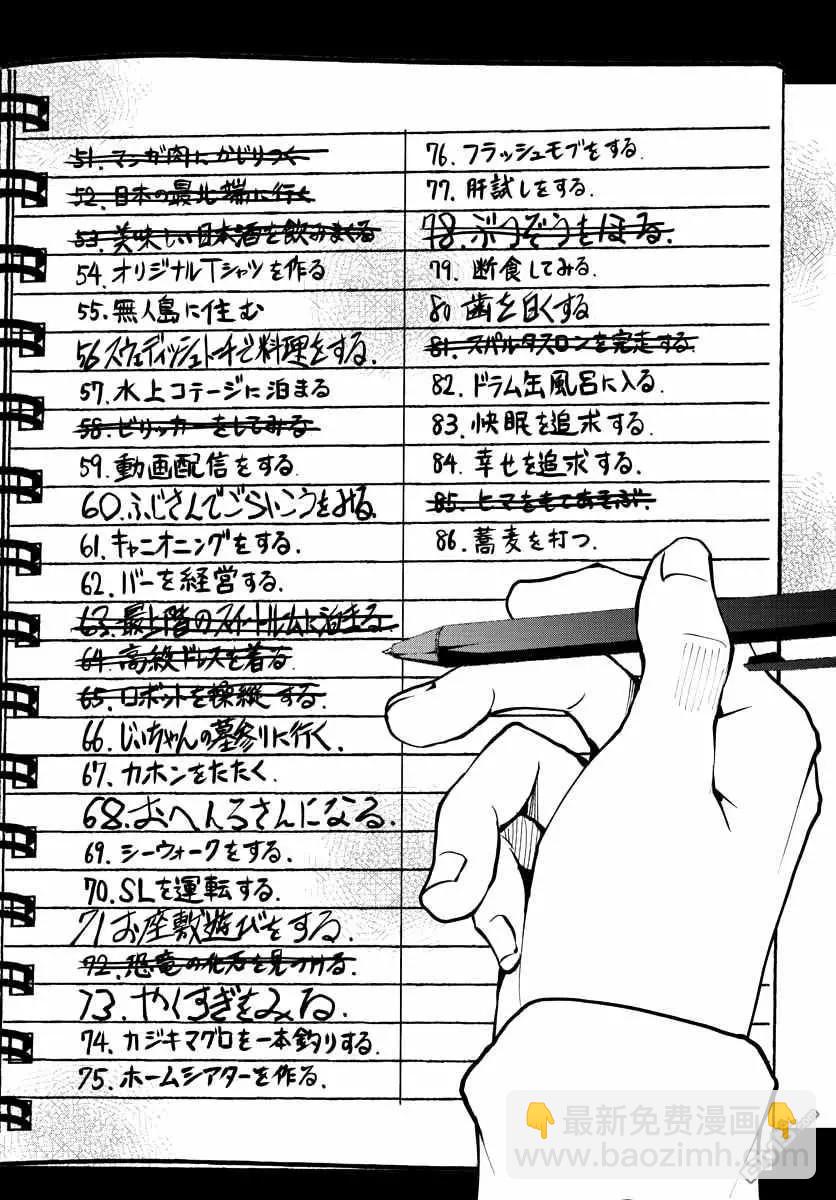 51.マンガ肉にかじりつく
52.日本の最北端に行く
53.美味しい日本酒を飲みまくる
54.オリジナルTシャツを作る
55.無人島に住む
56スウェディッシュトーチで料理をする.
57.水上コテージに泊まる
58.ビリッカーをしてみる
59.動画配信をする.
60.ふじさんでごらいこうをみる.
61.キャニオニングをする.
62.バーを経営する.
63.最上階のスイートルームに泊まる.
64.高級ドレスを着る
65.ロボットを操縦する.
66.じいちゃんの墓参りに行く.
67.カホンをたたく.
68.おへんろさんになる.
69.シーウォークをする.
70.SLを運転する.
71お座敷遊びをする.
72.恐竜の化石を見つける.
73.やくすぎをみる.
74.カジキマグロを一本釣りする.
75.ホームシアターを作る.
76.フラッシュモブをする.
77.肝試しをする.
78.ぶつぞうをほる.
79.断食してみる.
80歯を白くする
81.スパルタスロンを完走する.
82.ドラム缶風呂に入る.
83.快眠を追求する.
84.幸せを追求する.
85.ヒマをもてあそぶ.
86.蕎麦を打つ.
👇最新免费漫画👇
www.baozimh.com